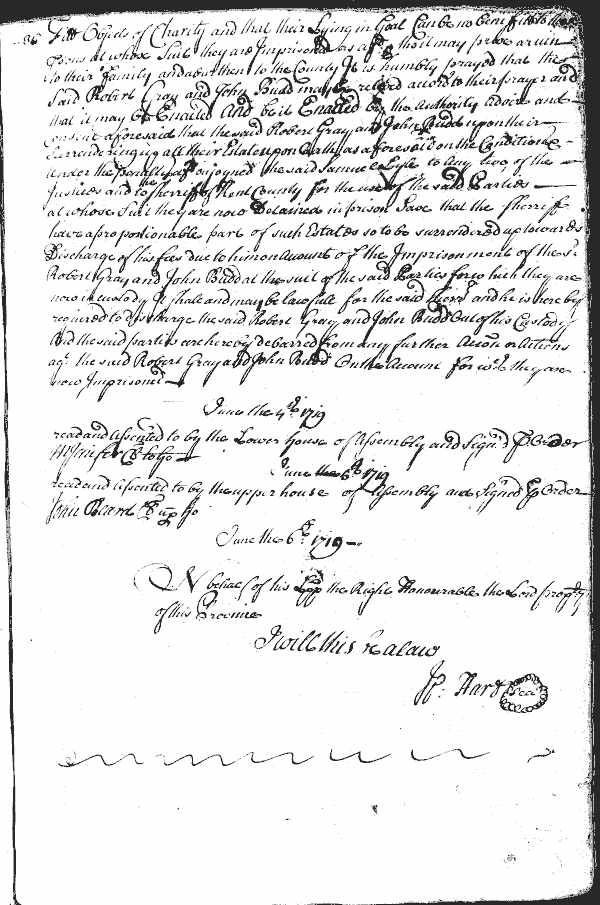 Objects of Charity and that their Lying in Goal Can be no benefitt to the
psons at whose Suit they are Imprisoned as afd. tho it may prove a ruin
to their Family and a burthen to the County It is humbly prayed that the
said Robert Gray and John Budd may be releived accord: to their prayer and
that it may be Enacted And be it Enacted by the Authority advice and
Consent aforesaid that the said Robert Gray and John Budd upon their
Surrendering up all their Estate upon Oath as aforesaid on the Conditions
under the penaltys afd. Injoyned the said Samuel Lyle to Any two of the
Justices and to the sherriff of Kent County for the use of the said Parties
at whose Suit they are now Detained in prison Save that the Sherriff
have a proportionable part of such Estates so to be surrendered up towards
Discharge of his fees due to him on Account of the Imprisonment of the sd.
Robert Gray and John Budd at the suit of the said Parties for which they are
now in custody It shall and may be lawfull for the said Sherrf. and he is hereby
required to discharge the said Robert Gray and John Budd Out of his Custody
And the said parties are hereby debarred from any further Accon or Actions
agt. the said Robert Gray and John Budd On the Account for wch. they are
now Imprisoned
June the 4th. 1719
read and Assented to by the Lower house of Assembly and Signd. p Order
M Jenifer Cl lo ho
June the 6th. 1719
read and Assented to by the upper house of Assembly and Signed p Order
John Beard Cl up ho
June the 6th. 1719
On behalf of his Lopp the Right Honourable the Lord propry.
of this Province
I will this be a law
Jo: Hart Seal